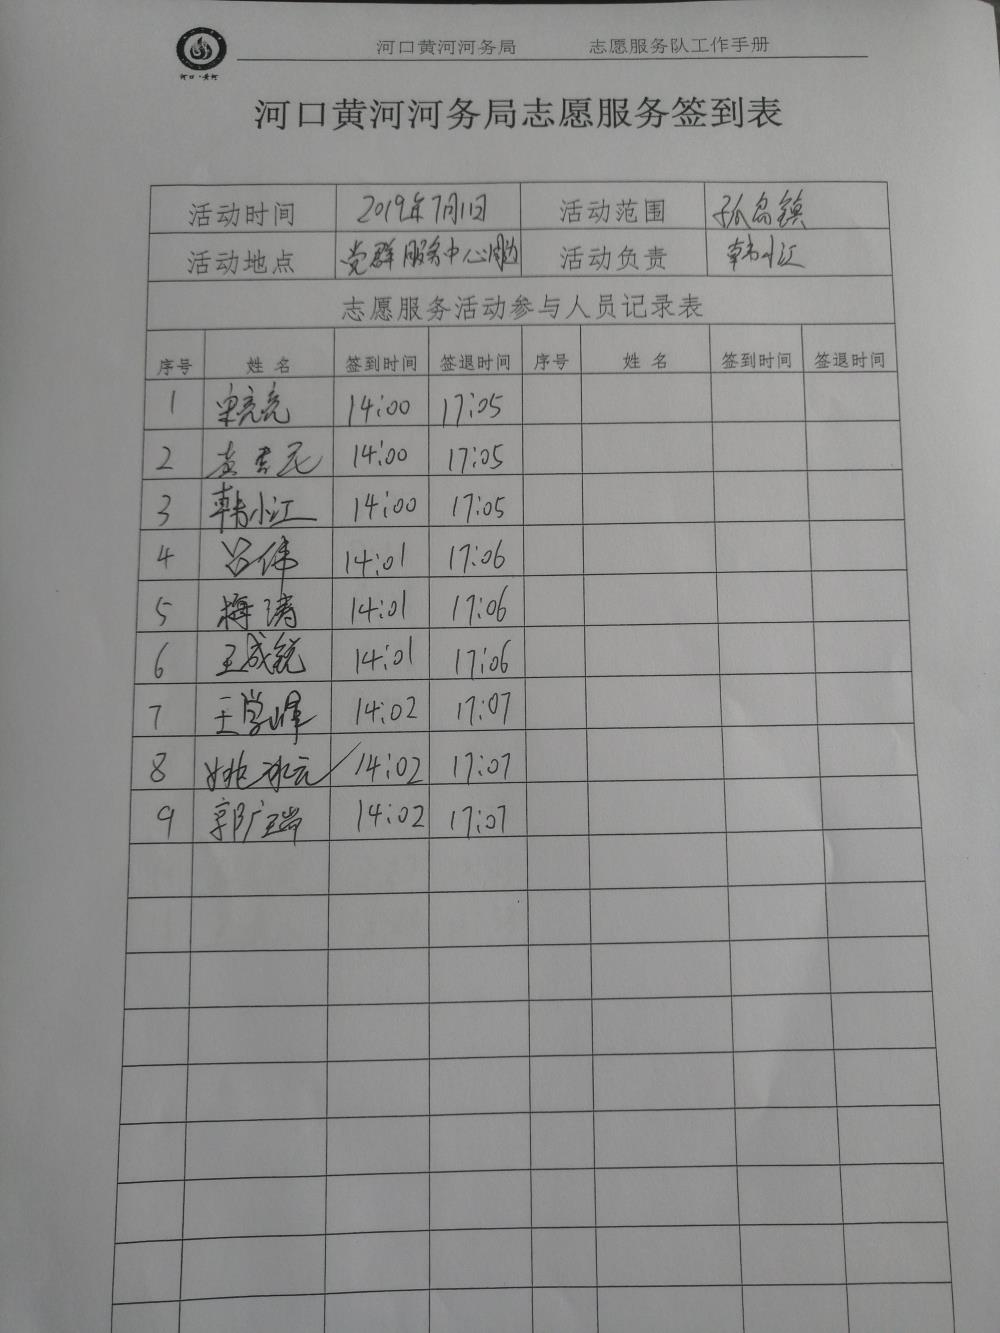 河口·黄河
河口黄河河务局 志愿服务队工作手册
河口黄河河务局志愿服务签到表
活动时间 2019年7月11日 活动范围 孤岛镇
活动地点 党群服务中心周边 活动负责 韩小江
志愿服务活动参与人员记录表
序号 姓名 签到时间 签退时间 序号 姓名 签到时间 签退时间
1 亮亮 14:00 17:05
2 黄 14:00 17:05
3 韩小江 14:00 17:05
4 吕伟 14:01 17:06
5 梅涛 14:01 17:06
6 王成锐 14:01 17:06
7 王学峰 14:02 17:07
8 姚冰云 14:02 17:07
9 郭广瑞 14:02 17:07